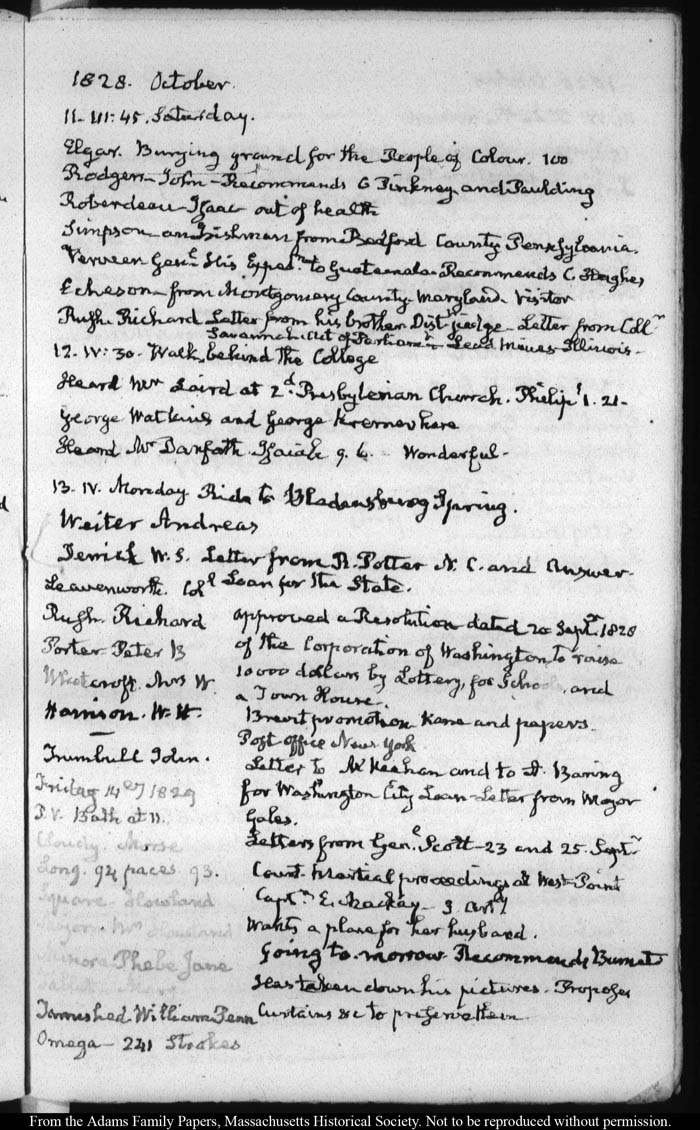 1828. October.
11. III: 45. Saturday.
Elgar. Burying ground for the People of Colour. 100
Rodgers - John - Recommends G Pinkney and Paulding
Roberdeau - Isaac out of health
Simpson - an Irishman from Bedford County Pennsylvania.
Verveer Genl. His Expedn. to Guatemala - Recommends C. Hughes
Echeson - from Montgomery County Maryland Visitor
Rush. Richard Letter from his brother Dist Judge - Letter from Colln
Savannah Act of Parliamt. - Lead Mines Illinois -
12. IV: 30. Walk behind the College
Heard Mr Laird at 2d. Presbyterian Church. Philipi 1. 21.
George Watkins and George Kremer here
Heard Mr Danforth Isaiah 9. 6. - Wonderful -
13. IV. Monday Ride to Bladensburg Spring.
Weiter Andreas
Derrick W. S. Letter from R. Potter N. C. and Answer.
Leavenworth. Coll Loan for the State.
Rush. Richard approved a Resolution dated 20 Septr. 1828
Porter Peter B of the Corporation of Washington to raise
Whetcroft. Mrs W. 10000 dollars by Lottery, for Schools, and
a Town House.
Harrison. W. H. Brevet promotion Kane and papers.
Post office New York
Trumbull John. Letter to McKeehan and to A. Baring
Friday 14 1829 for Washington City Loan - Letter from Mayor
I. V. Bath at 11. Gales.
Cloudy. Morse Letters from Genl. Scott - 23 and 25. Septr
Long. 94 paces 93. Court Martial proceedings at West-Point
Square - Howland Captn E. Mackay - 3. Arty
Mrs Howland Wants a place for her husband.
Minors Phebe Jane Going to-morrow Recommends Burnet
Has taken down his pictures. Proposes
Tarnished William Penn Curtains &c to preserve them
Omega - 241 Strokes
From the Adams Family Papers, Massachusetts Historical Society. Not to be reproduced without permission.